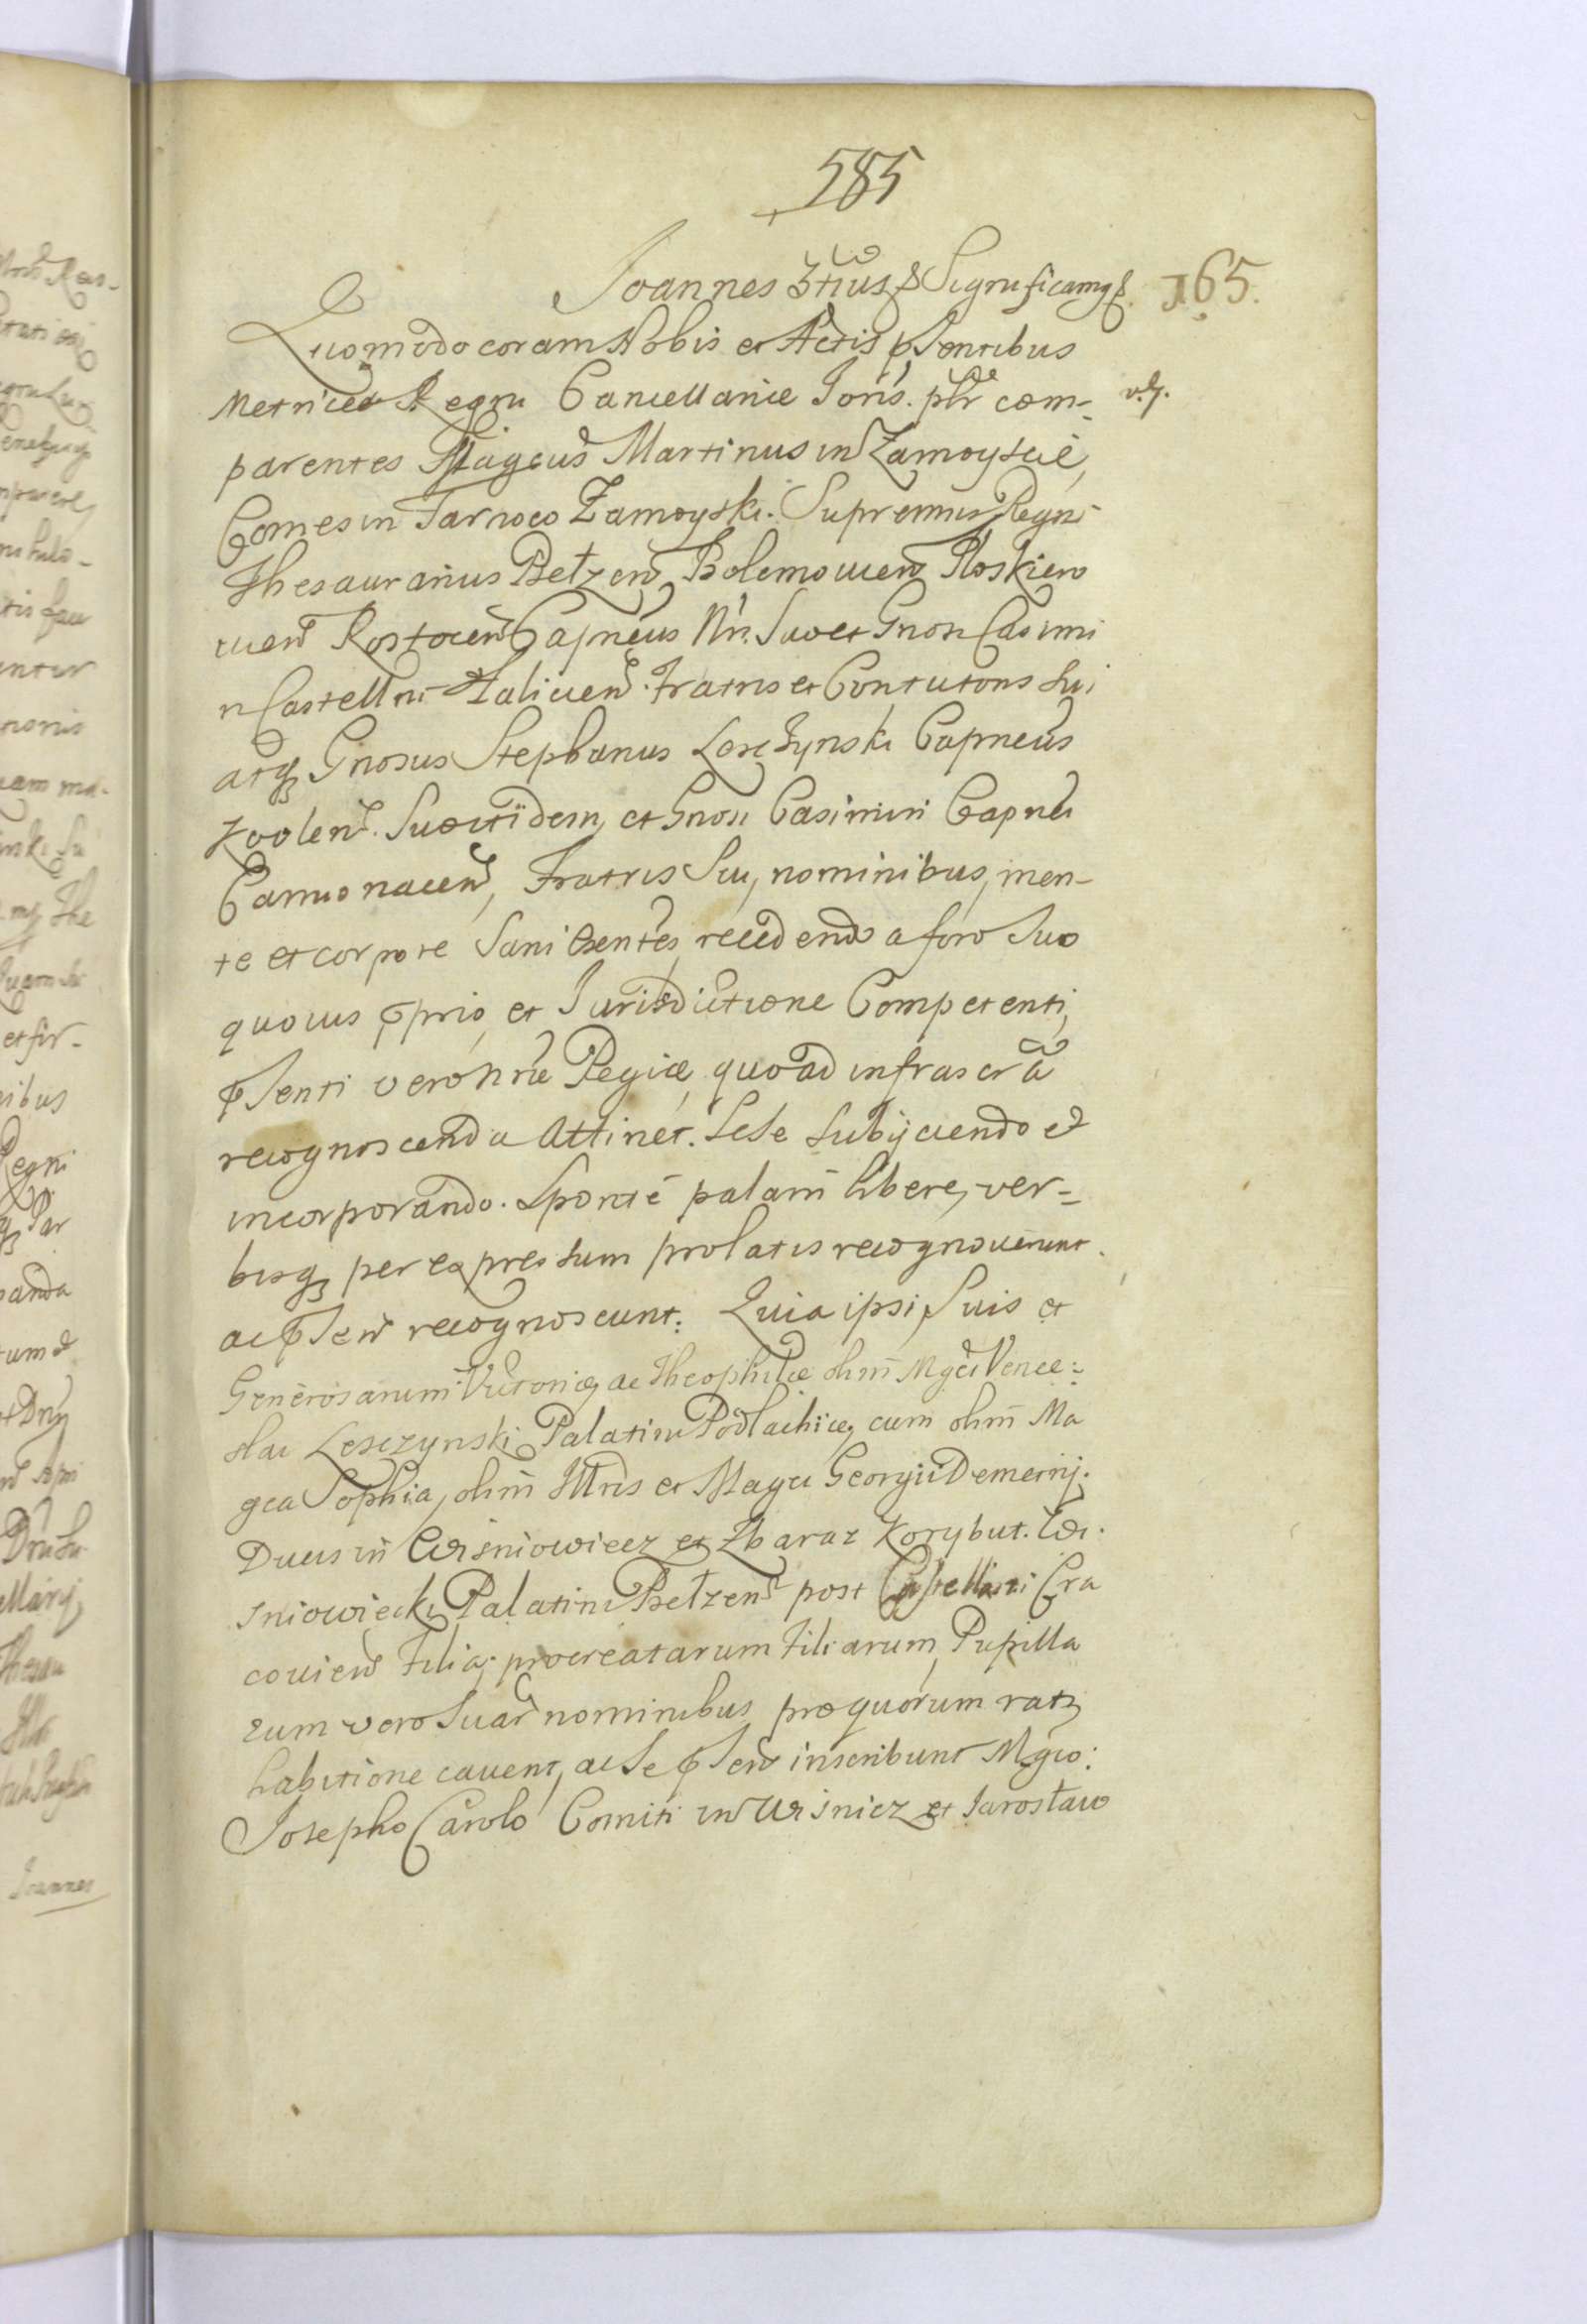 585
Joannes 3tius & Significamq &. 165.
Quomodo coram Nobis et Actis pñsentibus
Metrices Regni Cancellariæ Joris. plr com- v.g.
parentes Magcus Martinus in Zamoyscie,
Comes in Tarnow Zamoyski. Supremus Regni
Thesaurarius Bełzen, Bolemouien Płoskiero
uien Rostocien Capneus Nn. Suo et Gnosi Casimi
ri Castellni Halicien. Fratris et Contutoris Sui
atq Gnosus Stephanus Lesczynski Capneus
Suo itidem, et Gnosi Casimiri Capnei
Camionacen, Fratris Sui, nominibus, men-
te et corpore Sani Exentes, recedendo a foro Suo
quouis pprio, et Jurisdictione Competenti,
pSenti vero nræ Regiæ, quoad infrascra
recognoscenda Attinet. Sese Subijciendo et
incorporando. Sponte palam libere, ver-
bisq per expressum prolatis recognouerunt.
ac pSen recognoscunt: Quia ipsi Suis et
Generosarum Victoriæ, ac Theophilæ olim Mgci Vence:
slai Lesczynski Palatini Podlachiæ, cum olim Ma
gca Sophia, olim Illris et Magci Georgii Demetrij.
Ducis in Wisniowiecz et Zbaraz Korybut. Wi.
sniowiecki Palatini Bełzen post Castellani Cra
couien Filia; procreatarum Filiarum, Pupilla
rum vero Suar nominibus pro quorum rati
habitione cauent, ac Se pSen inscribunt Mgco:
Josepho Carolo Comiti in Wisnicz et Jarosław